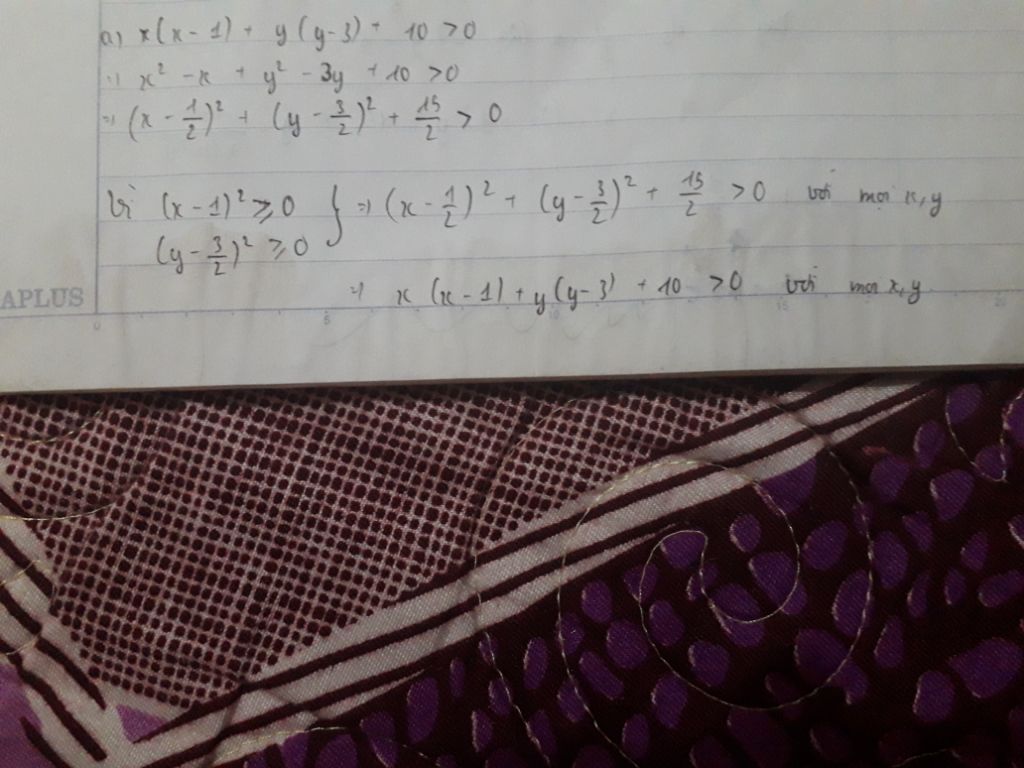 a) x(x-1) + y(y-3) + 10 > 0
=> x² - x + y² - 3y + 10 > 0
=> (x - 1/2)² + (y - 3/2)² + 15/2 > 0
Vì (x-1)² ≥ 0 } => (x - 1/2)² + (y - 3/2)² + 15/2 > 0 với mọi x, y
(y - 3/2)² ≥ 0
=> x(x-1) + y(y-3) + 10 > 0 với mọi x, y
APLUS
0 5 10 15 20